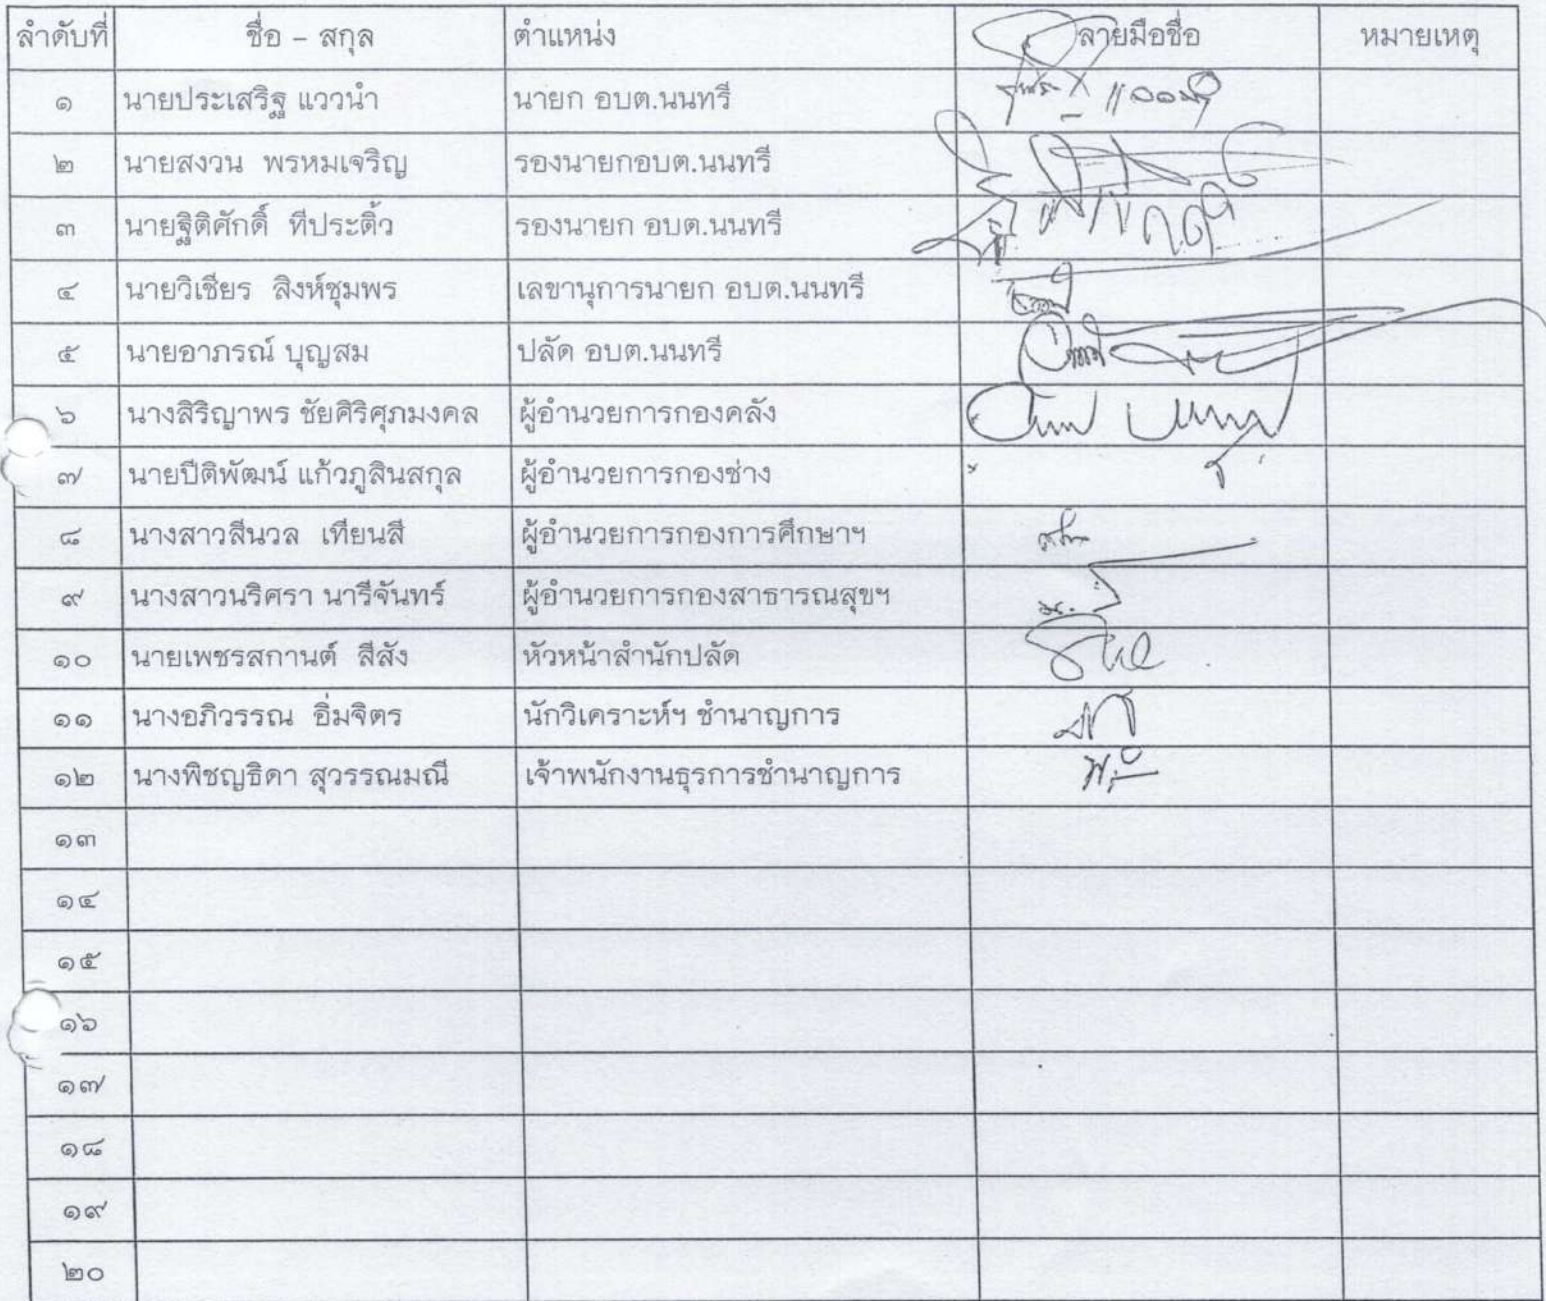 ลำดับที่ ชื่อ - สกุล ตำแหน่ง ลายมือชื่อ หมายเหตุ
๑ นายประเสริฐ แววนำ นายก อบต.นนทรี
๒ นายสงวน พรหมเจริญ รองนายกอบต.นนทรี
๓ นายฐิติศักดิ์ ทีประติ้ว รองนายก อบต.นนทรี
๔ นายวิเชียร สิงห์ชุมพร เลขานุการนายก อบต.นนทรี
๕ นายอาภรณ์ บุญสม ปลัด อบต.นนทรี
๖ นางสิริญาพร ชัยศิริศุภมงคล ผู้อำนวยการกองคลัง
๗ นายปีติพัฒน์ แก้วภูสินสกุล ผู้อำนวยการกองช่าง
๘ นางสาวสีนวล เทียนสี ผู้อำนวยการกองการศึกษาฯ
๙ นางสาวนริศรา นารีจันทร์ ผู้อำนวยการกองสาธารณสุขฯ
๑๐ นายเพชรสกานต์ สีสัง หัวหน้าสำนักปลัด
๑๑ นางอภิวรรณ อิ่มจิตร นักวิเคราะห์ฯ ชำนาญการ
๑๒ นางพิชญธิดา สุวรรณมณี เจ้าพนักงานธุรการชำนาญการ
๑๓
๑๔
๑๕
๑๖
๑๗
๑๘
๑๙
๒๐